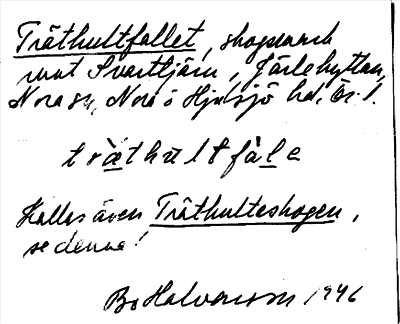 Träthultfallet, skogsmark
mot Svarttjärn, Järlehyttan,
Nora sn, Nora o Hjulsjö hd, Ör. l.
t r ä t h u l t f a l e
Kallas även Träthulteskogen,
se denna!
Bo Halvarsson 1946